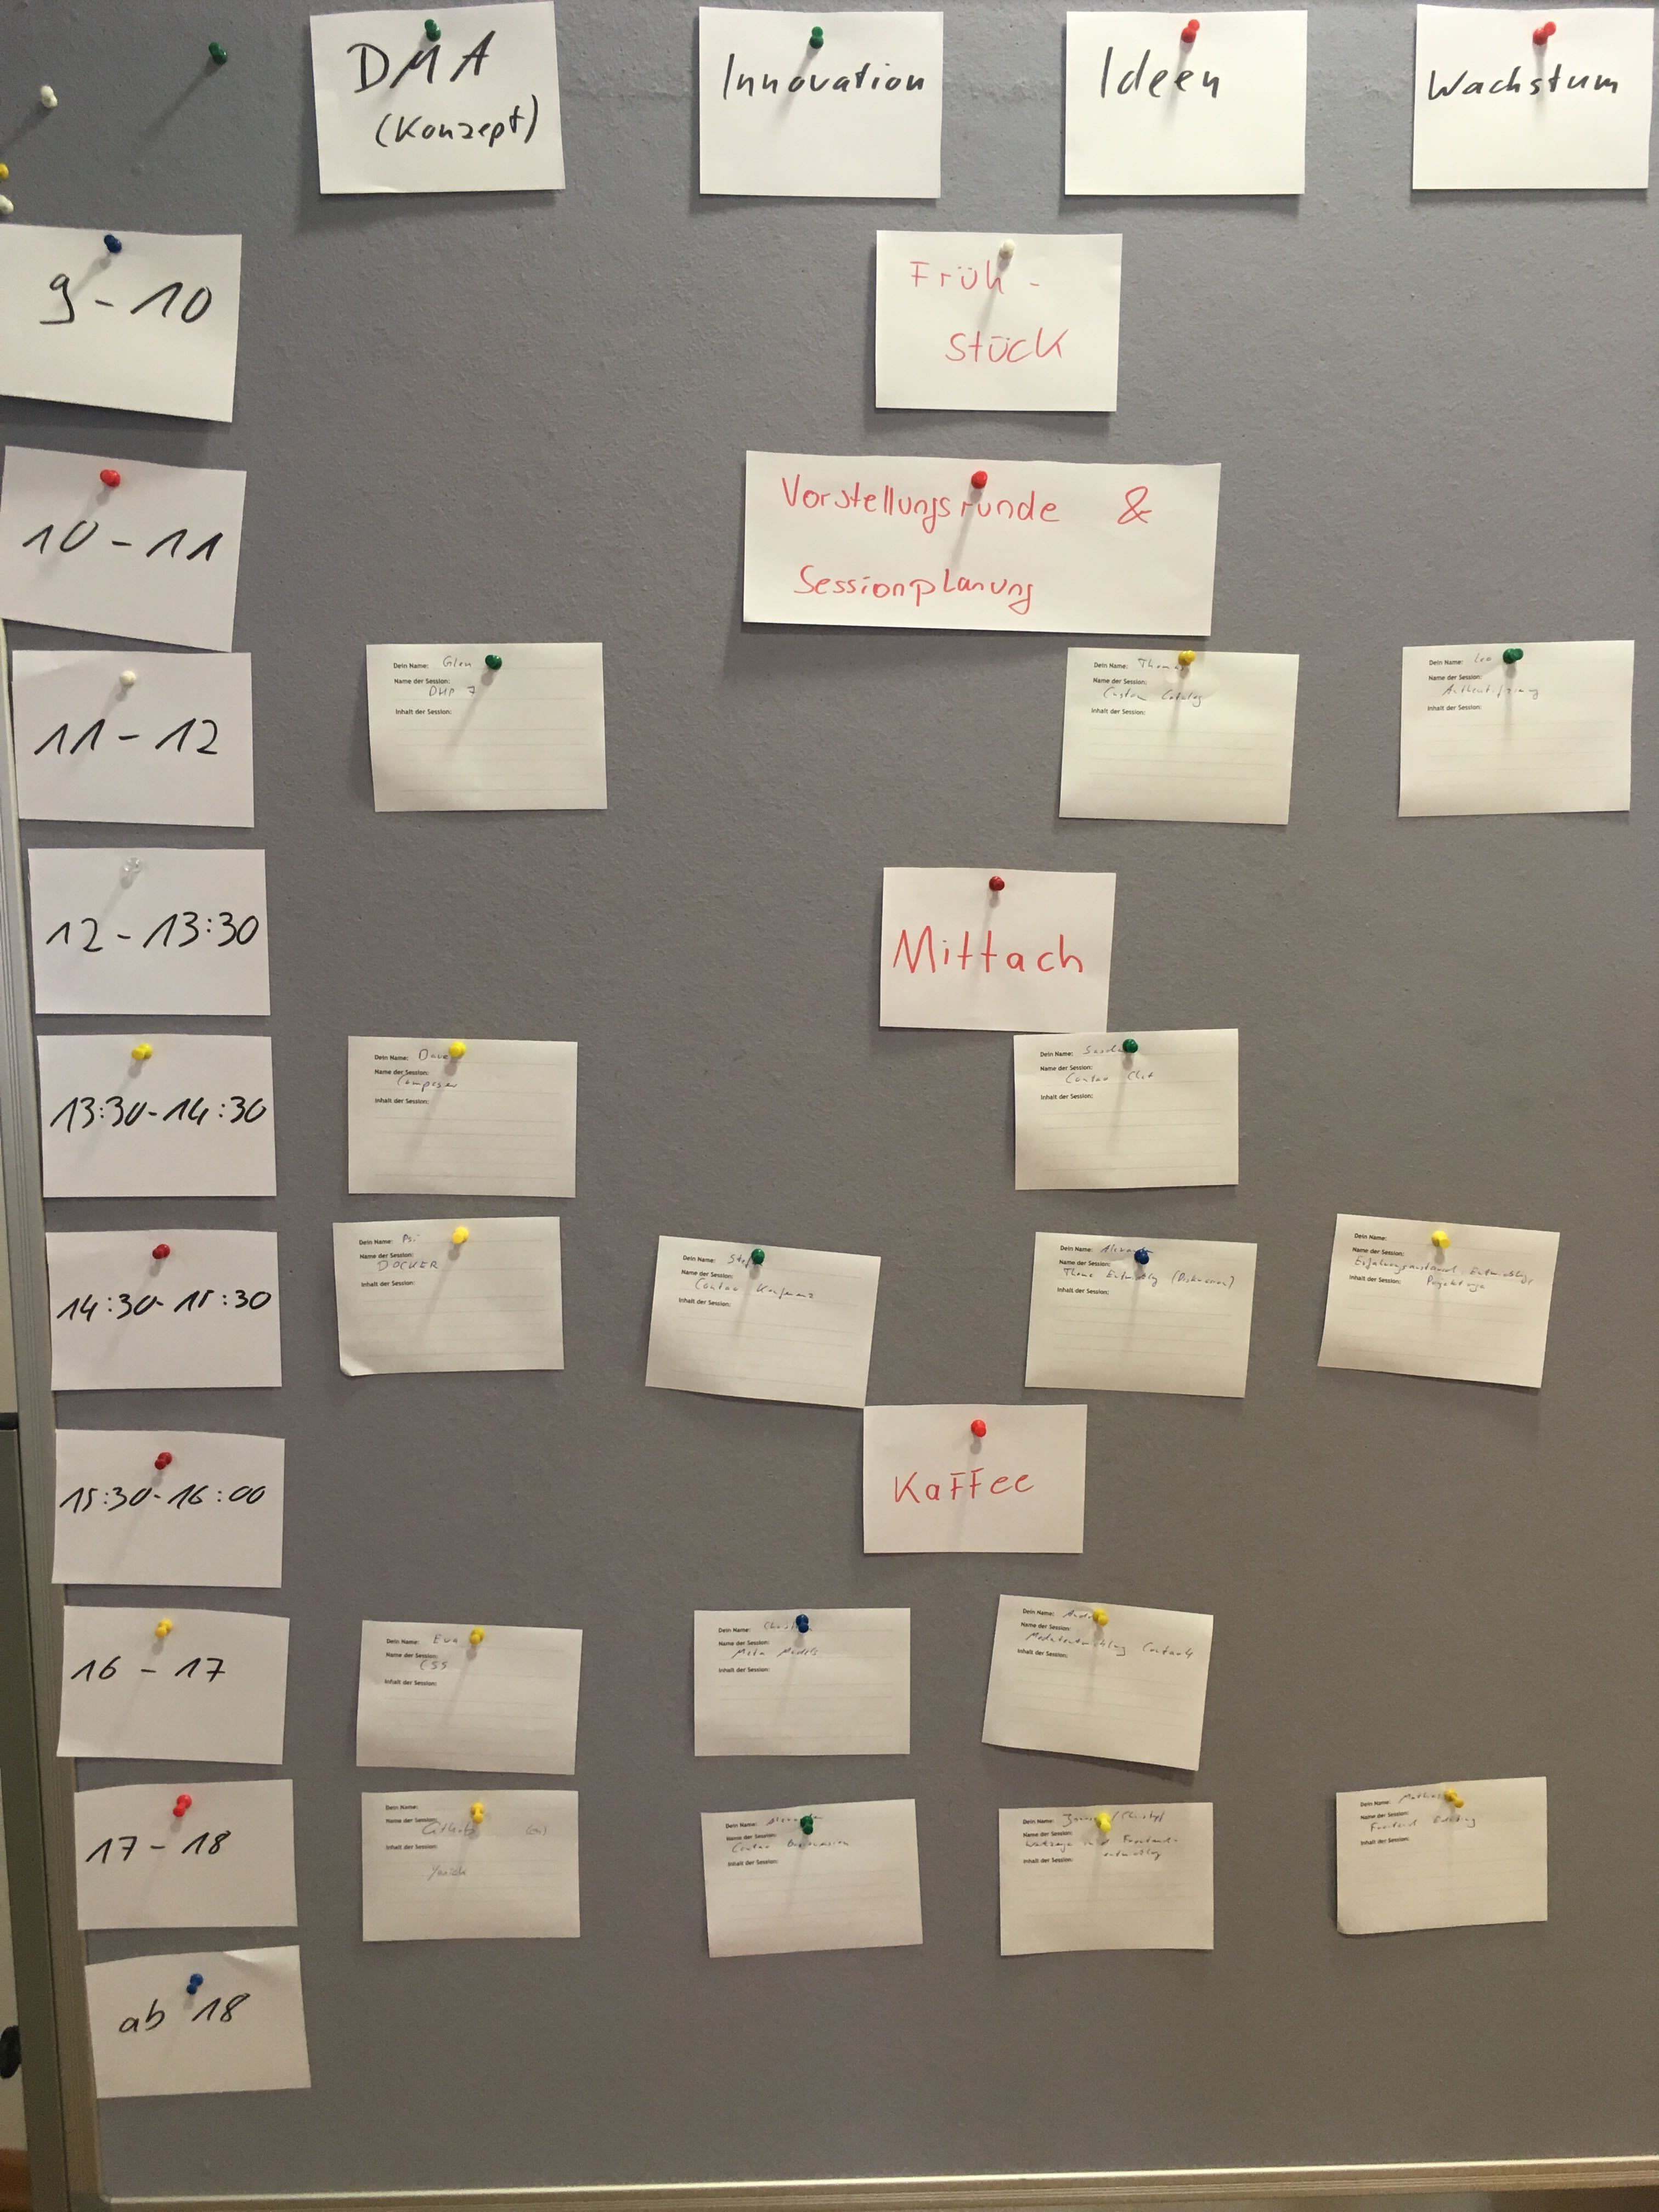 DMA
(Konzept)
Innovation
Ideen
Wachstum
9 - 10
Früh -
stück
10 - 11
Vorstellungsrunde &
Sessionplanung
11 - 12
Dein Name: Glen
Name der Session:
PHP 7
Inhalt der Session:
Dein Name: Thomas
Name der Session:
Custom Catalog
Inhalt der Session:
Dein Name: Leo
Name der Session:
Authentifizierung
Inhalt der Session:
12 - 13:30
Mittach
13:30 - 14:30
Dein Name: Dave
Name der Session:
Composer
Inhalt der Session:
Dein Name:
Name der Session:
Contao
Inhalt der Session:
14:30 - 15:30
Dein Name:
Name der Session:
DOCKER
Inhalt der Session:
Dein Name:
Name der Session:
Contao Konferenz
Inhalt der Session:
Dein Name:
Name der Session:
Theme Entwicklg (Diskussion)
Inhalt der Session:
Dein Name:
Name der Session:
Erfahrungsaustausch
Inhalt der Session:
15:30 - 16:00
Kaffee
16 - 17
Dein Name: Eva
Name der Session:
CSS
Inhalt der Session:
Dein Name:
Name der Session:
Meta Models
Inhalt der Session:
Dein Name:
Name der Session:
Contao 4
Inhalt der Session:
17 - 18
Dein Name:
Name der Session:
Inhalt der Session:
Yanick
Dein Name:
Name der Session:
Contao
Inhalt der Session:
Dein Name:
Name der Session:
Frontend-
entwicklung
Inhalt der Session:
Dein Name:
Name der Session:
Frontend Editing
Inhalt der Session:
ab 18